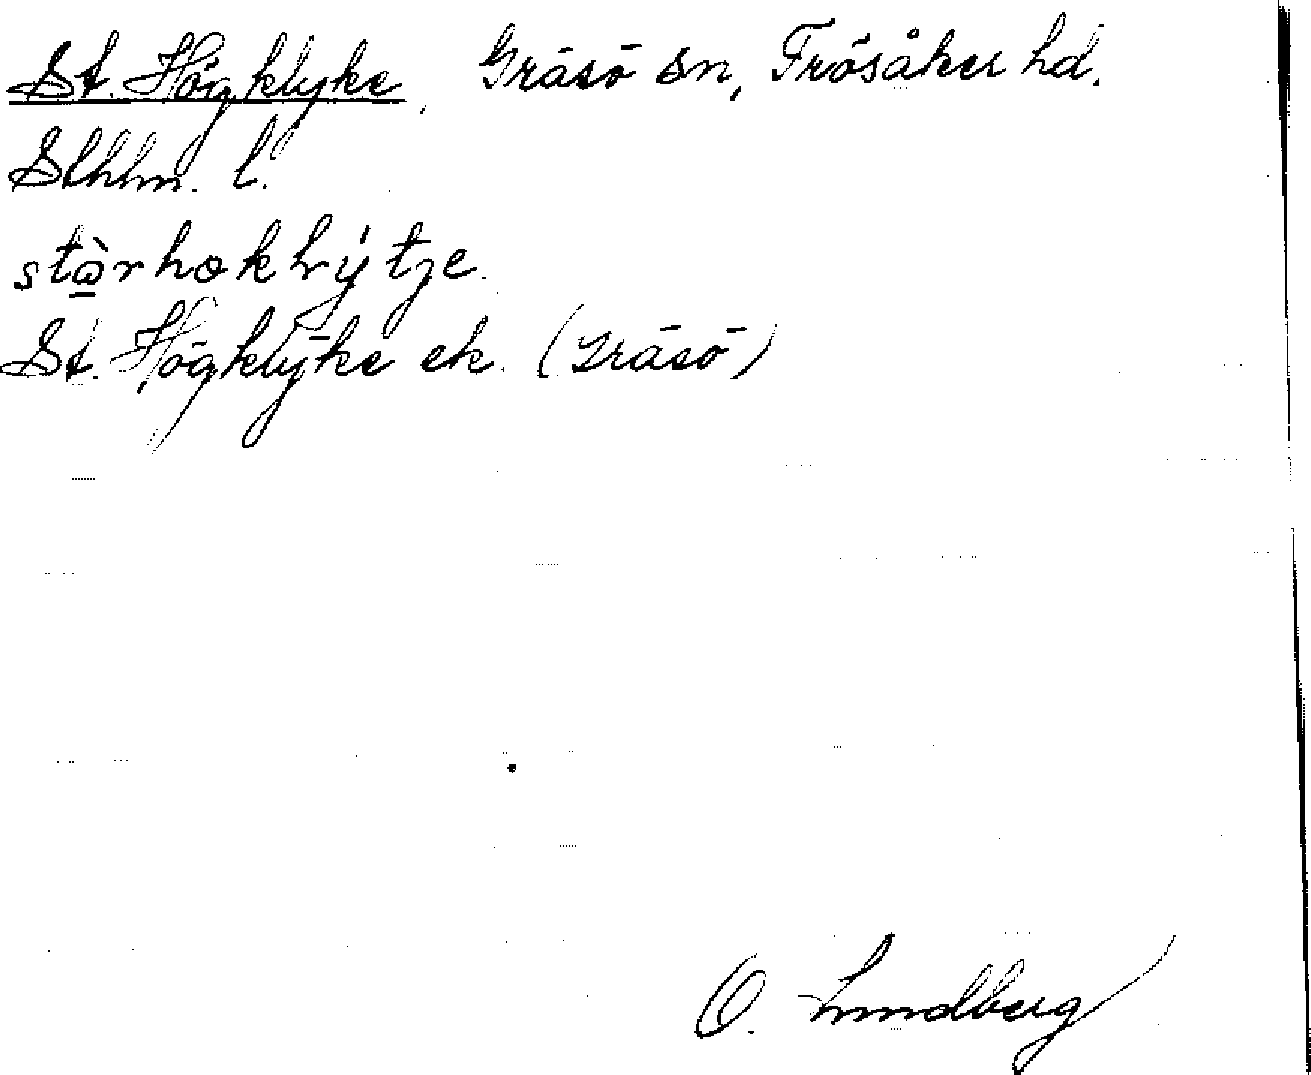 St. Högklyke. Gräsö sn, Frösåker hd.
Sthlm. l.
St. Högklyke ek. (Gräsö)
O. Lundberg